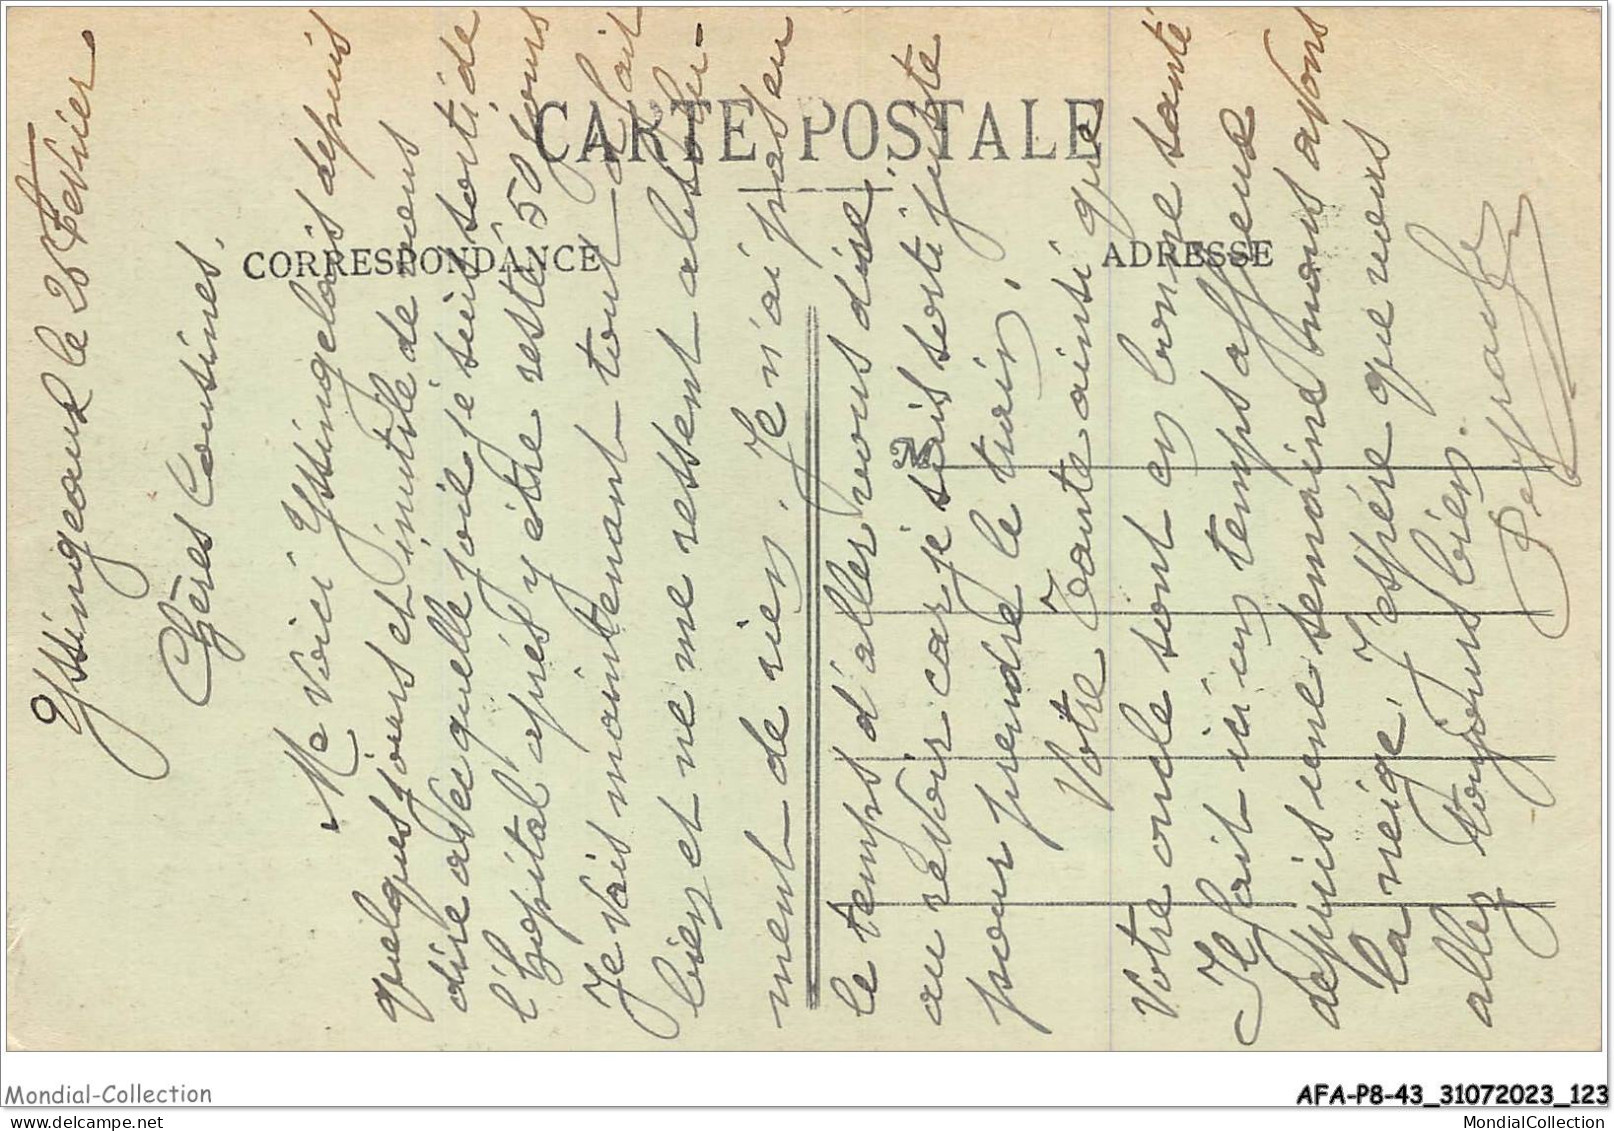 CARTE POSTALE
CORRESPONDANCE
ADRESSE
M
Yssingeaux le 26 Fevrier
Chères Cousines.
Me voici Yssingelais depuis
quelques jours et inutile de vous
dire avec quelle joie je suis sorti de
l'hopital après y être resté 50 jours
Je vais maintenant tout à fait
bien et ne me ressent absolu-
ment de rien. Je n'ai pas eu
le temps d'aller vous dire
au revoir car je suis sorti juste
pour prendre le train.
Votre Tante ainsi que
Votre oncle sont en bonne santé
Il fait ici un temps affreux
depuis une semaine nous avons
la neige. J'espère que vous
allez toujours bien.
Mondial-Collection
AFA-P8-43_31072023_123
www.delcampe.net
MondialCollection